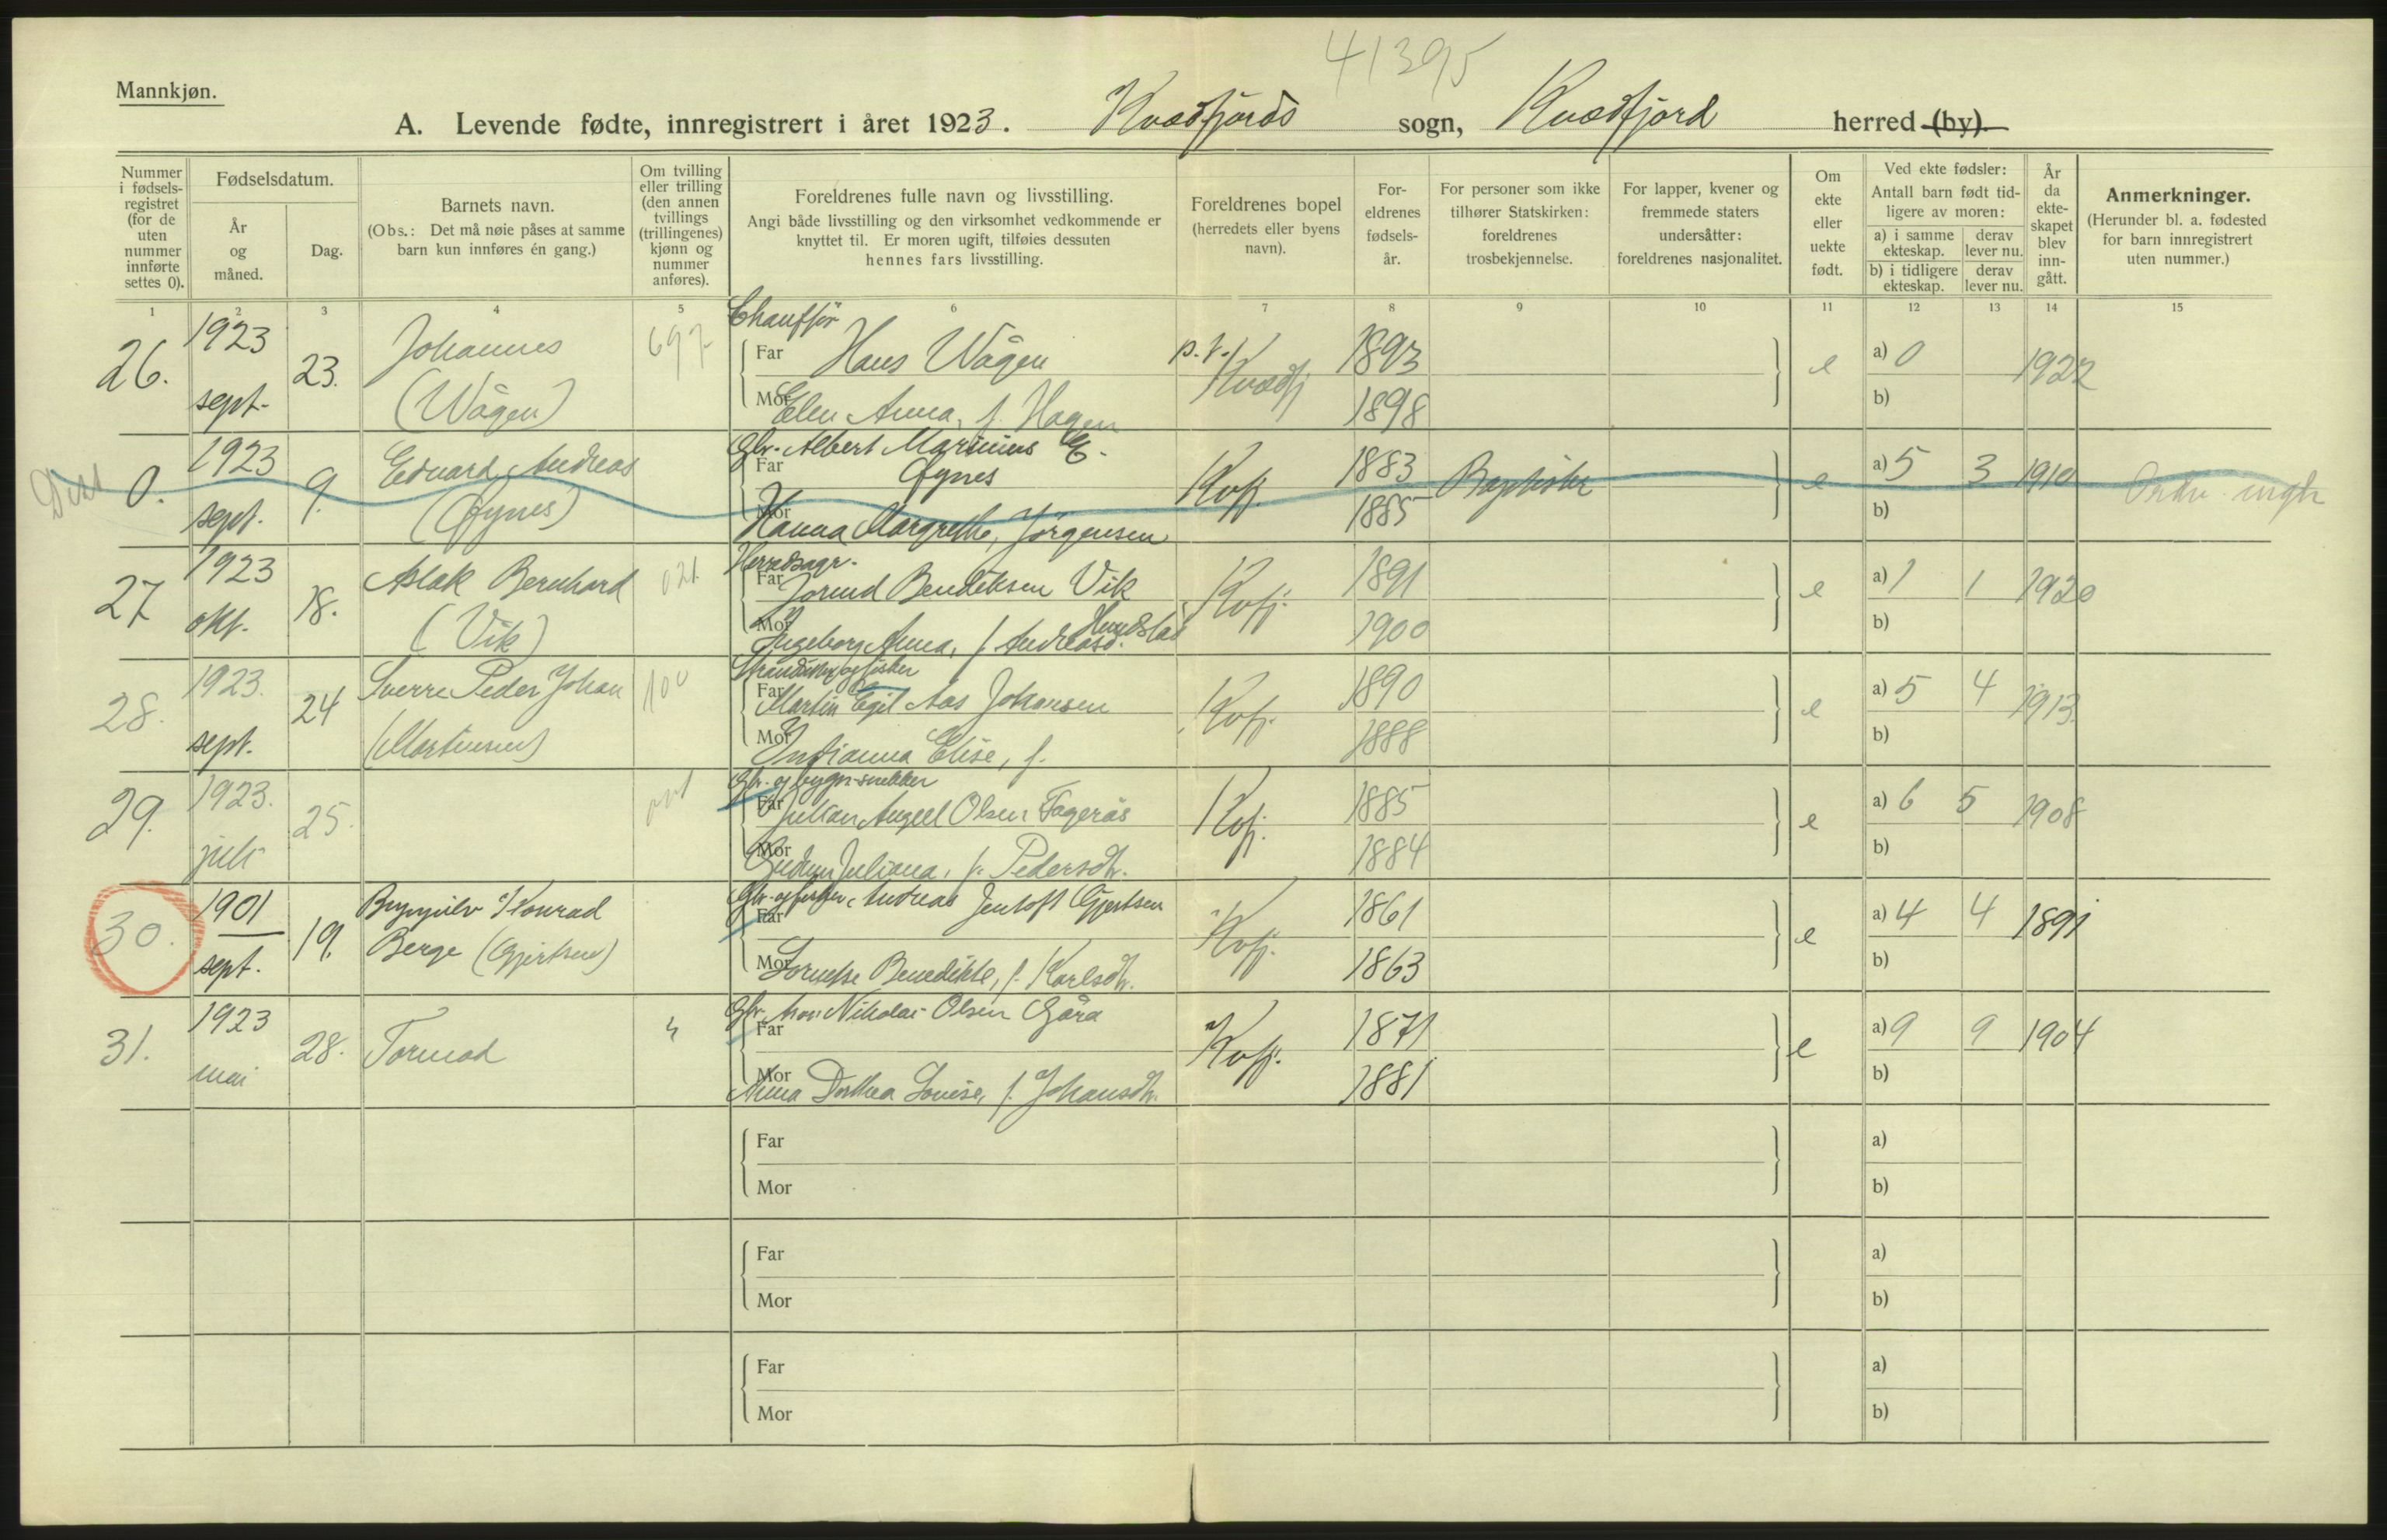 41395
Mannkjøn.
A. Levende fødte, innregistrert i året 1923. Kvædfjords sogn, Kvædfjord herred (by).
Nummer i fødselsregistret (for de uten nummer innførte settes 0).
Fødselsdatum.
År og måned.
Dag.
Barnets navn.
(Obs.: Det må nøie påses at samme barn kun innføres én gang.)
Om tvilling eller trilling (den annen tvillings (trillingenes) kjønn og nummer anføres).
Foreldrenes fulle navn og livsstilling.
Angi både livsstilling og den virksomhet vedkommende er knyttet til. Er moren ugift, tilføies dessuten hennes fars livsstilling.
Foreldrenes bopel (herredets eller byens navn).
Foreldrenes fødselsår.
For personer som ikke tilhører Statskirken: foreldrenes trosbekjennelse.
For lapper, kvener og fremmede staters undersåtter: foreldrenes nasjonalitet.
Om ekte eller uekte født.
Ved ekte fødsler:
Antall barn født tidligere av moren:
a) i samme ekteskap.
derav lever nu.
b) i tidligere ekteskap.
derav lever nu.
År da ekteskapet blev inngått.
Anmerkninger.
(Herunder bl. a. fødested for barn innregistrert uten nummer.)
1 2 3 4 5 6 7 8 9 10 11 12 13 14 15
26. 1923 sept. 23. Johannes (Vågen) 697
Chauffør
Far Hans Vågen
Mor Elen Anna, f. Hagen
p.t. Kvædfj 1893 1898 e a) 0 b) 1922
Diss 0. 1923 sept. 9. Edvard Andreas (Øynes)
Gbr. Albert Marinius E.
Far Øynes
Mor Hanna Margrethe, Jörgensen
Kvfj. 1883 1885 Baptister e a) 5 3 b) 1910
27 1923 okt. 18. Aslak Bernhard (Vik) 021
Herredsagr.
Far Jorund Bendiksen Vik
Mor Ingeborg Anna, f. Andreasd. Hundstad
Kvfj. 1891 1900 e a) 1 1 b) 1920
28. 1923. sept. 24 Sverre Peder Johan (Martinsen) 100
Far Martin Egil Aas Johansen
Mor Indianna Elise, f.
Kvfj. 1890 1888 e a) 5 4 b) 1913
29. 1923. juli 25.
Gbr. og bygn.snekker
Far Julian Angel Olsen Fagerås
Mor Gudrun Juliana, f. Pedersdtr.
Kvfj. 1885 1884 e a) 6 5 b) 1908
30. 1901 sept. 19. Brynjulv Konrad Berge (Gjertsen)
Gbr. og fisker Andreas Jentoft Gjertsen
Far
Mor Lorntse Benedikte, f. Karlsdtr.
Kvfj. 1861 1863 e a) 4 4 b) 1891
31. 1923 mai 28. Tormod 4
Gbr. Aron Nikolai Olsen Gåra
Far
Mor Anna Dorthea Lovise, f. Johansdtr.
Kvfj. 1871 1881 e a) 9 9 b) 1904
Far a)
Mor b)
Far a)
Mor b)
Far a)
Mor b)